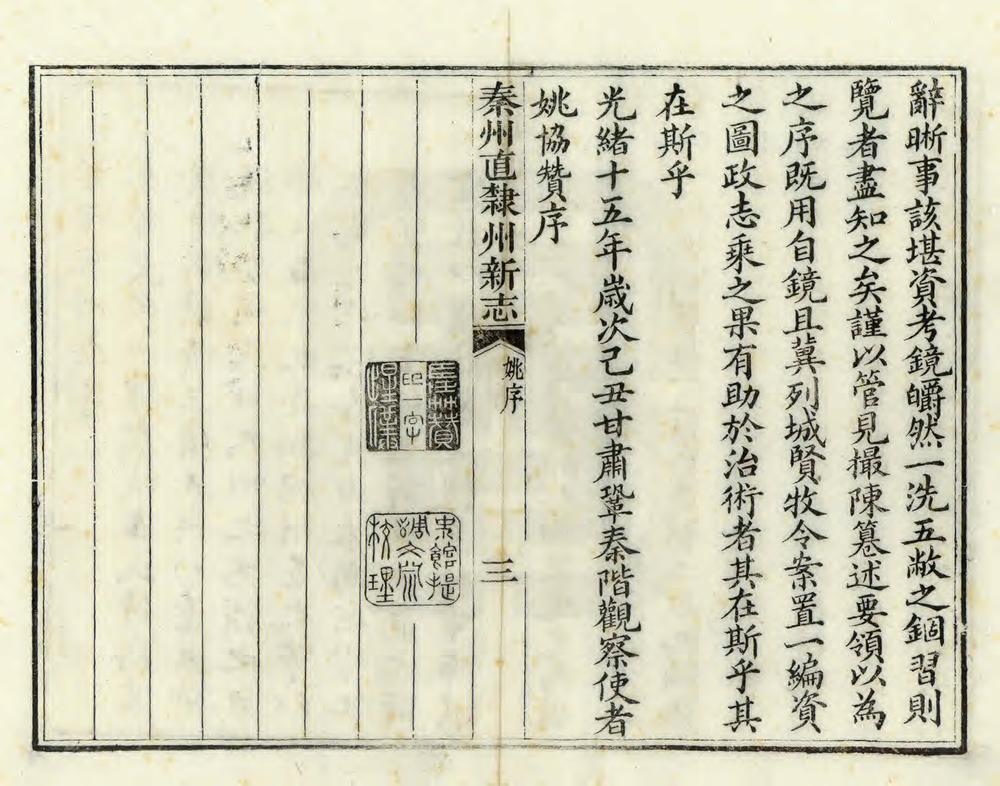 辭晰事該堪資考鏡皭然一洗五敝之錮習則
覽者盡知之矣謹以管見撮陳纂述要領以為
之序既用自鏡且冀列城賢牧令案置一編資
之圖政志乘之果有助於治術者其在斯乎其
在斯乎
光緒十五年歲次己丑甘肅鞏秦階觀察使者
姚協贊序
秦州直隸州新志
姚序
三
史館提
調文淵
校理